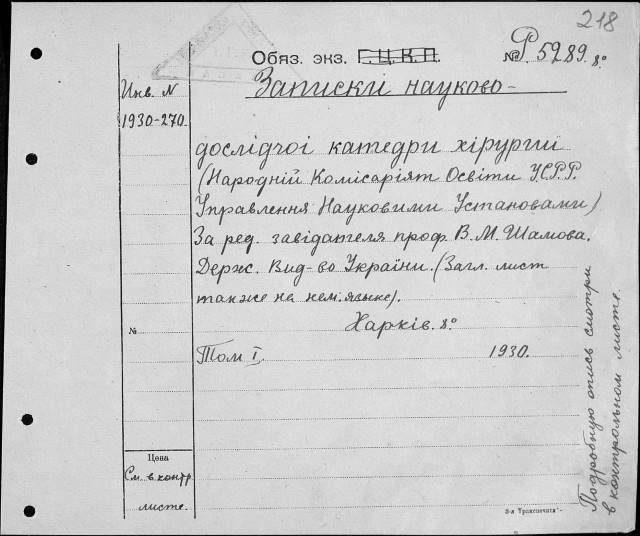 218
Обяз. экз. Г.Ц.К.П. № Р 5289. 8°
Инв. N
1930-270.
Записки науково-
дослідчоі катедри хірургии
(Народній Комісаріят Освіти У.С.Р.Р.
Управлення Науковими Установами)
За ред. завідателя проф. В.М. Шамова.
Держ. Вид-во України. (Загл. лист
также на нем. языке).
Харків. 8°
№
Том I. 1930.
Цена
См. в контр.
листе.
Подробную опись смотри
в контрольном листе.
3-я Транспечать